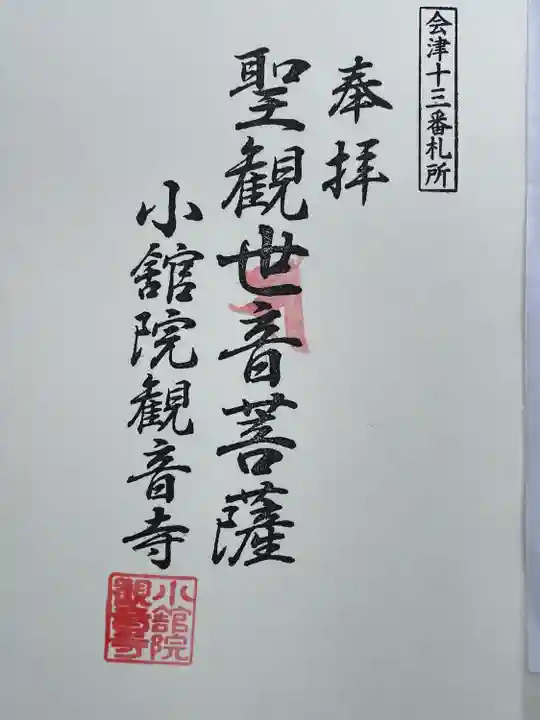 会津十三番札所
奉拝
聖観世音菩薩
小舘院観音寺
小舘院
観音寺